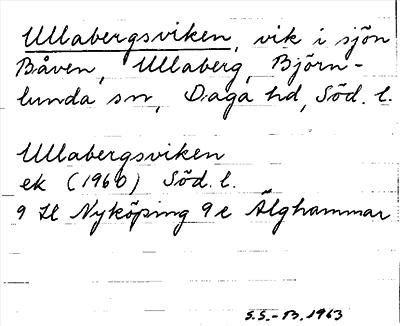 Ullabergsviken, vik i sjön
Båven, Ullaberg, Björn-
lunda sn, Daga hd, Söd. l.
Ullabergsviken
ek (1960) Söd. l.
9 H Nyköping 9 e Älghammar
S.S.-B. 1963